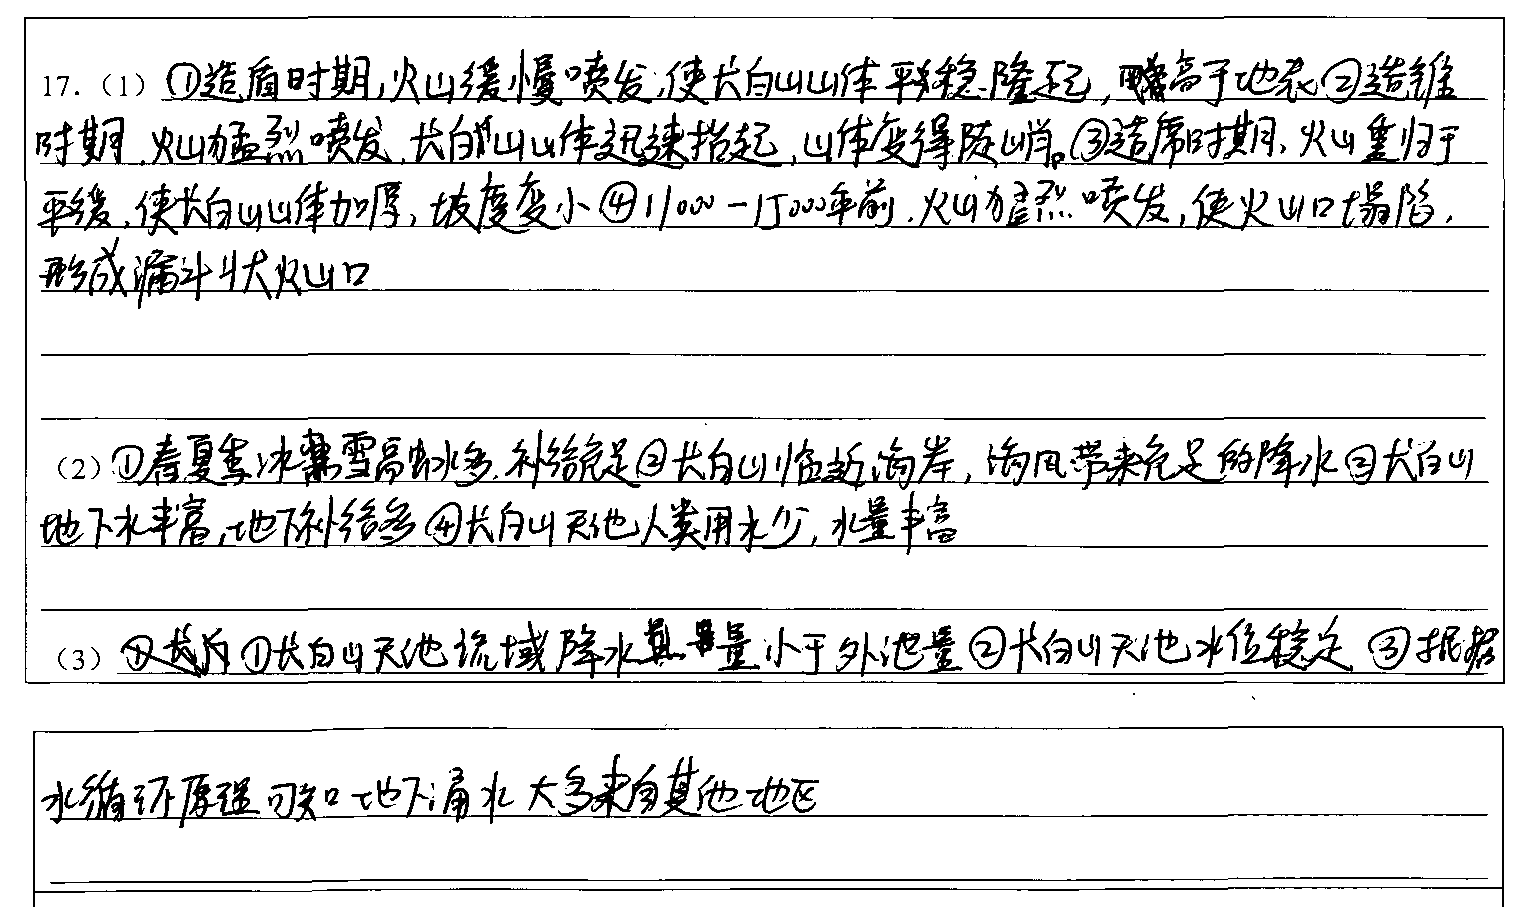 17.（1）①造盾时期,火山缓慢喷发,使长白山山体平稳隆起，高于地表②造锥
时期,火山猛烈喷发,长白山山体迅速抬起,山体变得陡峭。③造席时期,火山重归于
平缓,使长白山山体加厚,坡度变小④11000-15000年前,火山猛烈喷发,使火山口塌陷,
形成漏斗状火山口
（2）①春夏季冰雪高山水多,补给充足②长白山临近海岸,海风带来充足的降水③长白山
地下水丰富,地下补给多④长白山天池人类用水少,水量丰富
（3）①长白山天池流域降水量小于外泄量②长白山天池水位稳定③根据
水循环原理可知地下涌水大多来自其他地区